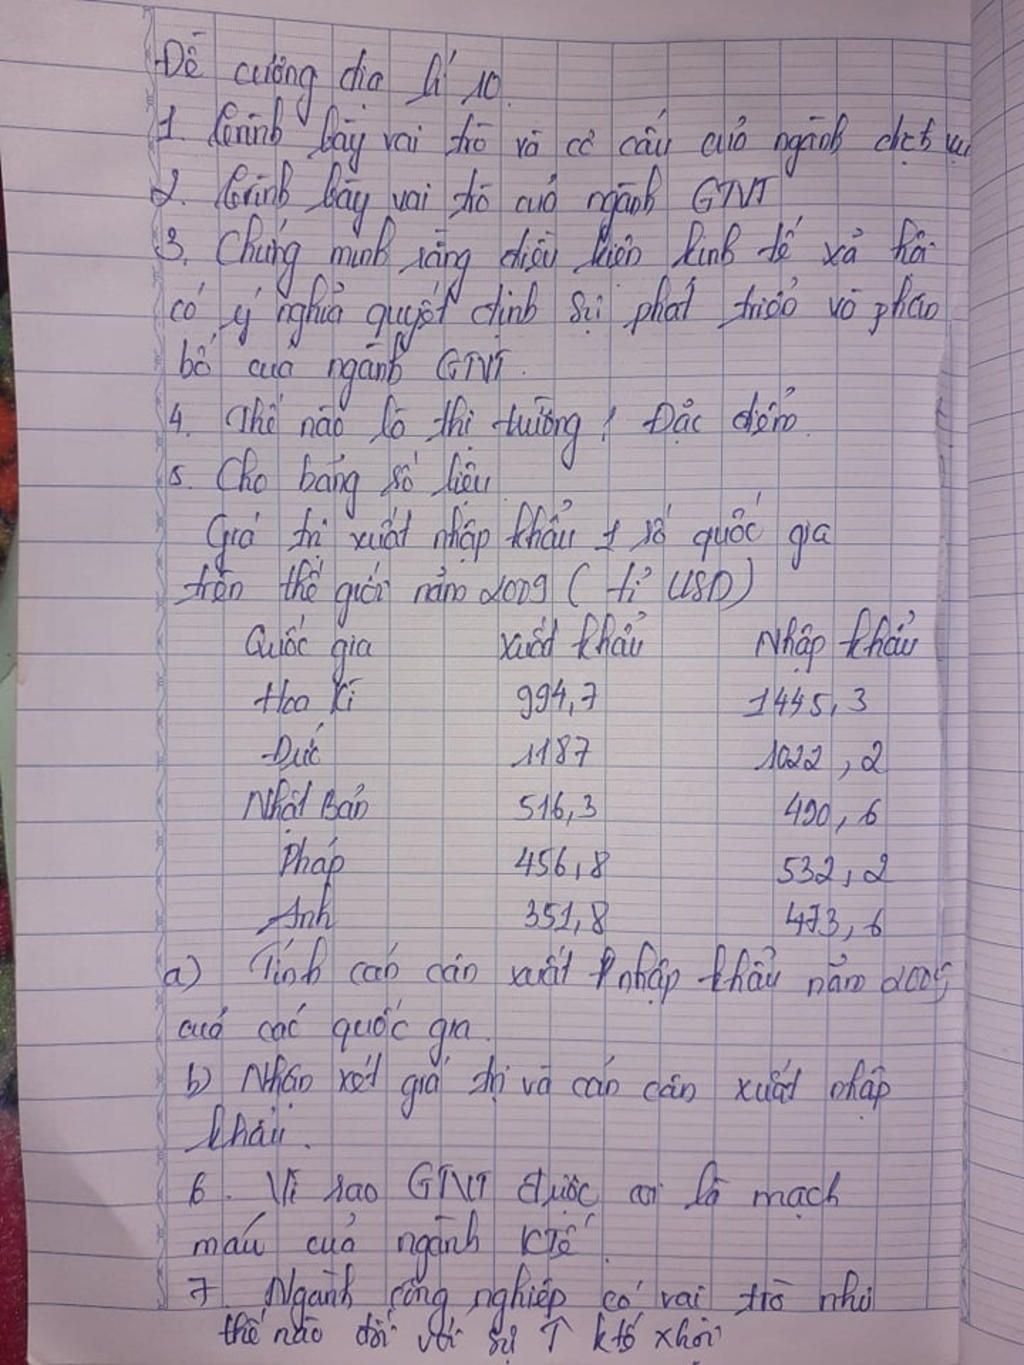 Đề cương địa lí 10.
1. Trình bày vai trò và cơ cấu của ngành dịch vụ
2. Trình bày vai trò của ngành GTVT
3. Chứng minh rằng điều kiện kinh tế xã hội
có ý nghĩa quyết định sự phát triển và phân
bố của ngành GTVT.
4. Thế nào là thị trường? Đặc điểm.
5. Cho bảng số liệu
Giá trị xuất nhập khẩu 1 số quốc gia
trên thế giới năm 2009 ( tỉ USD)
Quốc gia xuất khẩu Nhập khẩu
Hoa Kì 994,7 1445,3
Đức 1187 1022,2
Nhật Bản 516,3 490,6
Pháp 456,8 532,2
Anh 351,8 473,6
a) Tính cán cân xuất nhập khẩu năm 2009
của các quốc gia.
b) Nhận xét giá trị và cán cân xuất nhập
khẩu.
6. Vì sao GTVT được coi là mạch
máu của ngành KTế.
7. Ngành công nghiệp có vai trò như
thế nào đối với sự ↑ ktế xhội